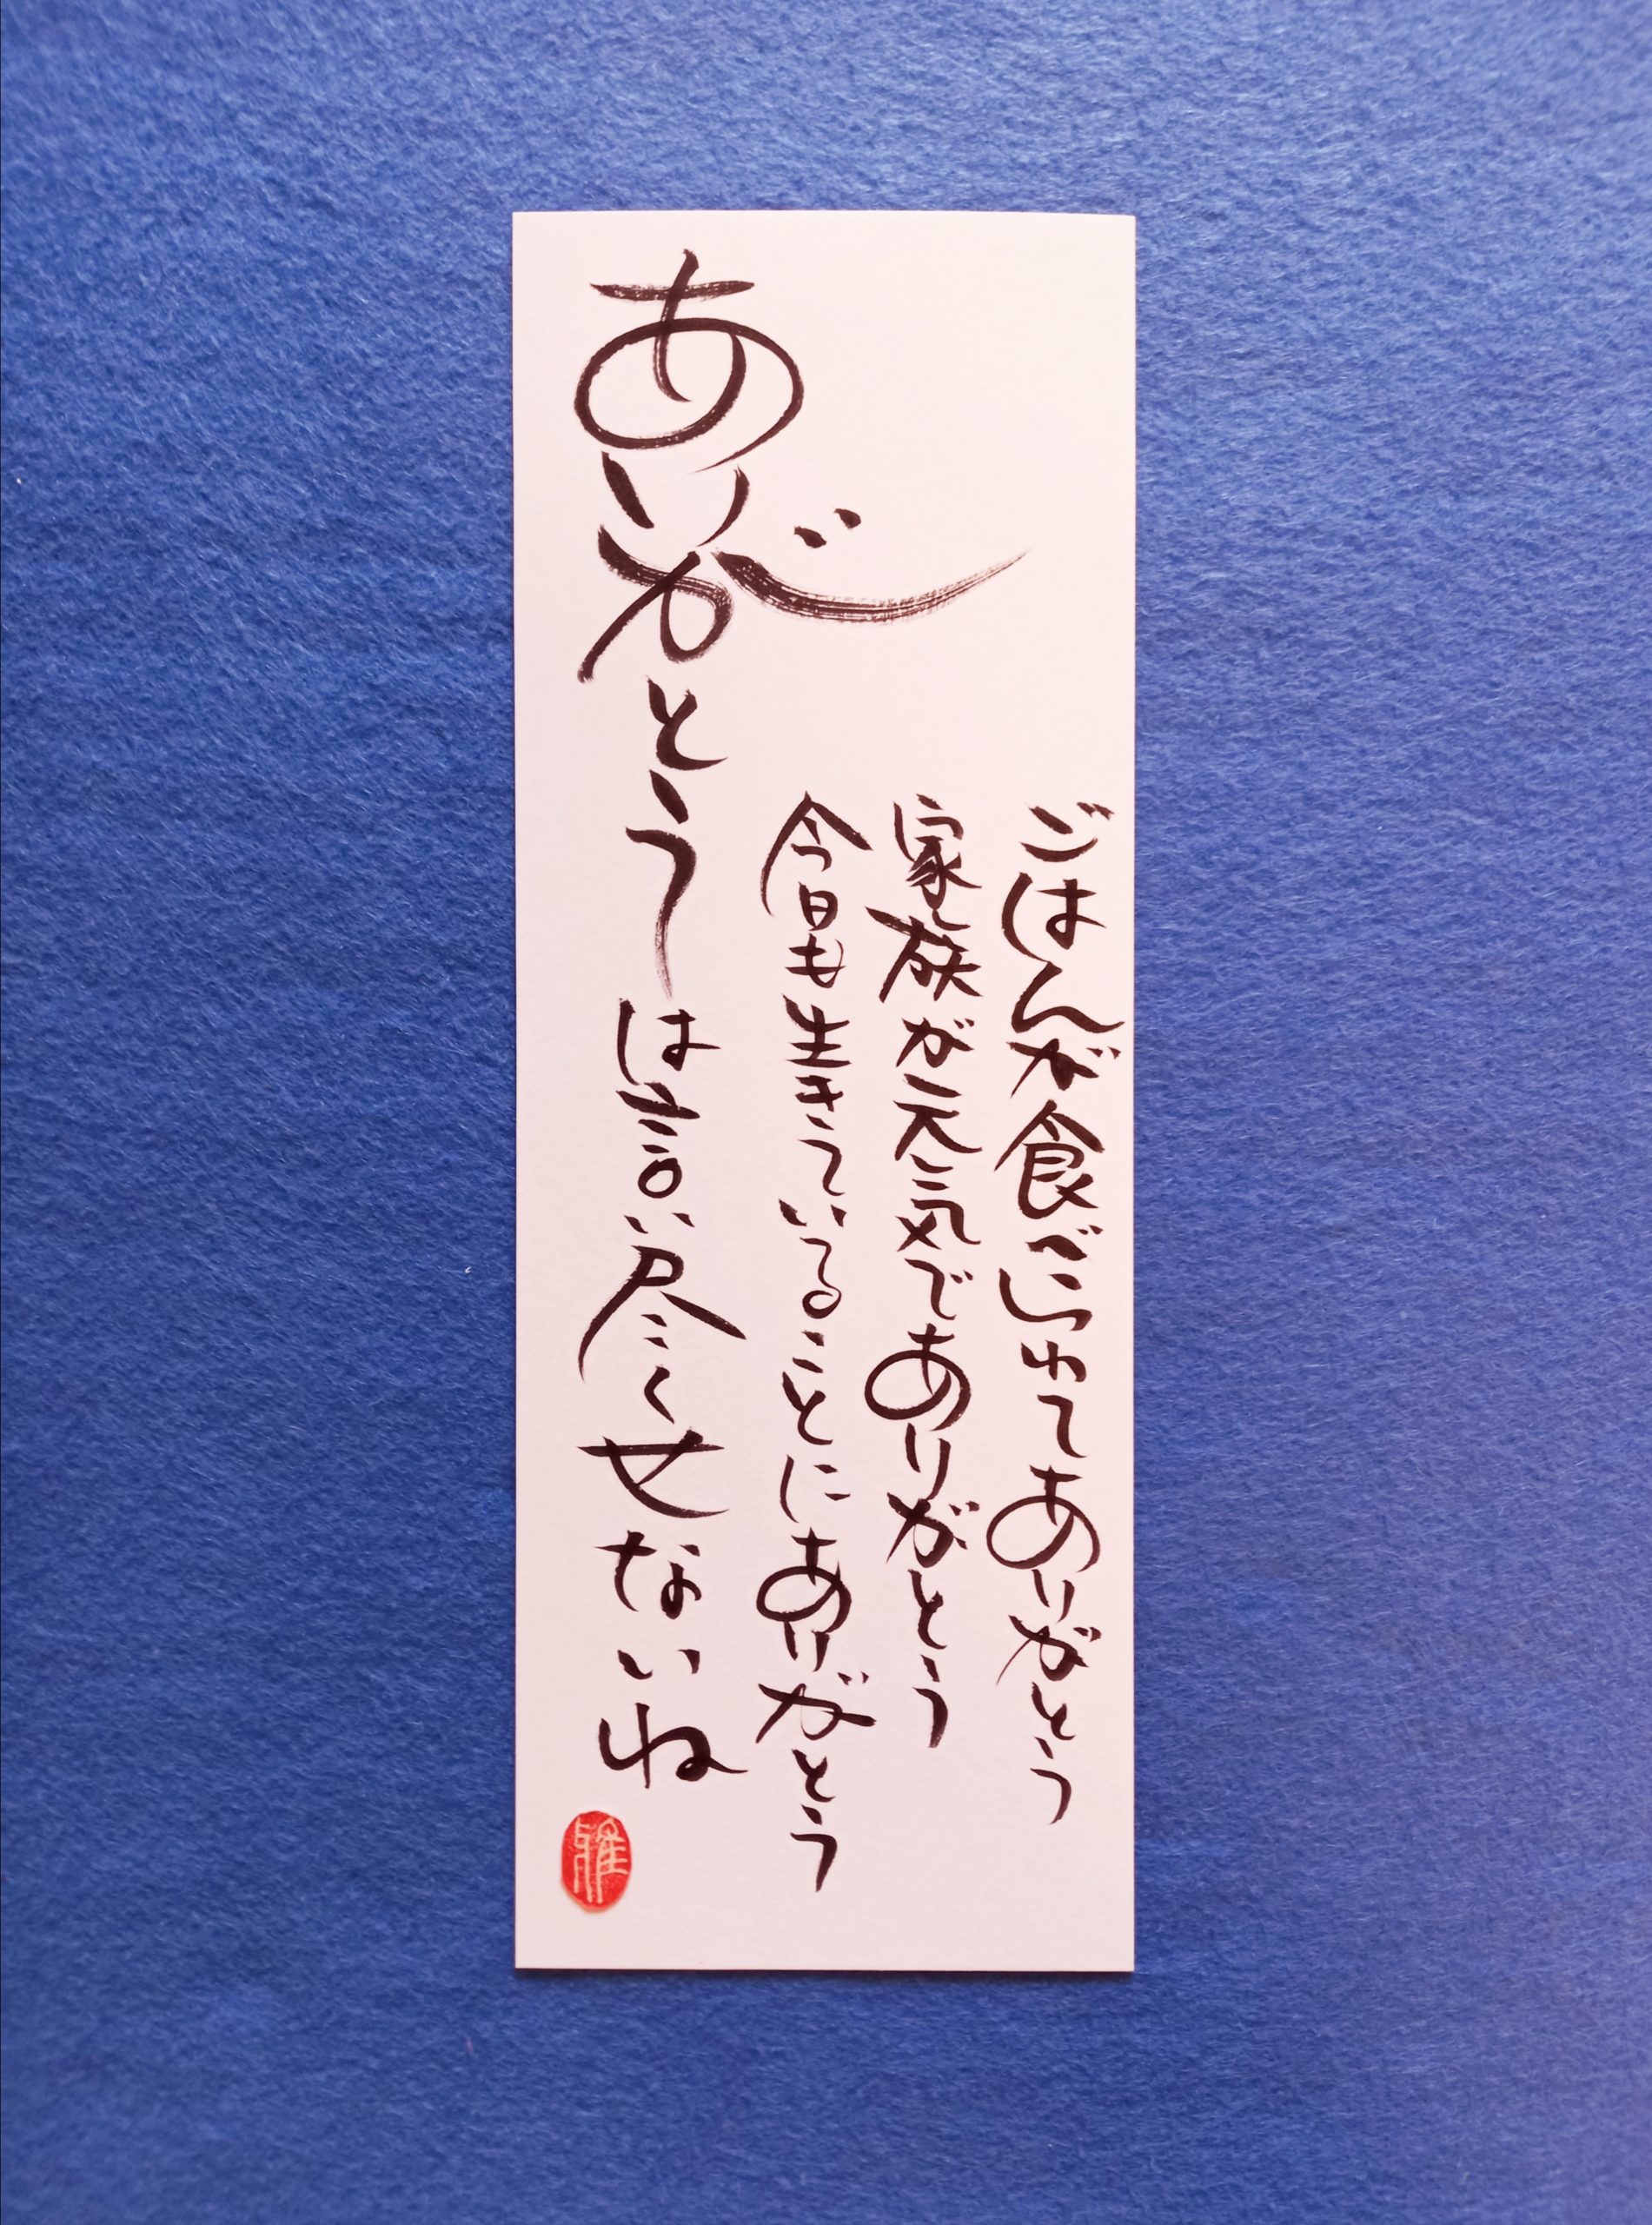 ごはんが食べられてありがとう
家族が元気でありがとう
今日も生きていることにありがとう
ありがとうは言い尽くせないね
雅